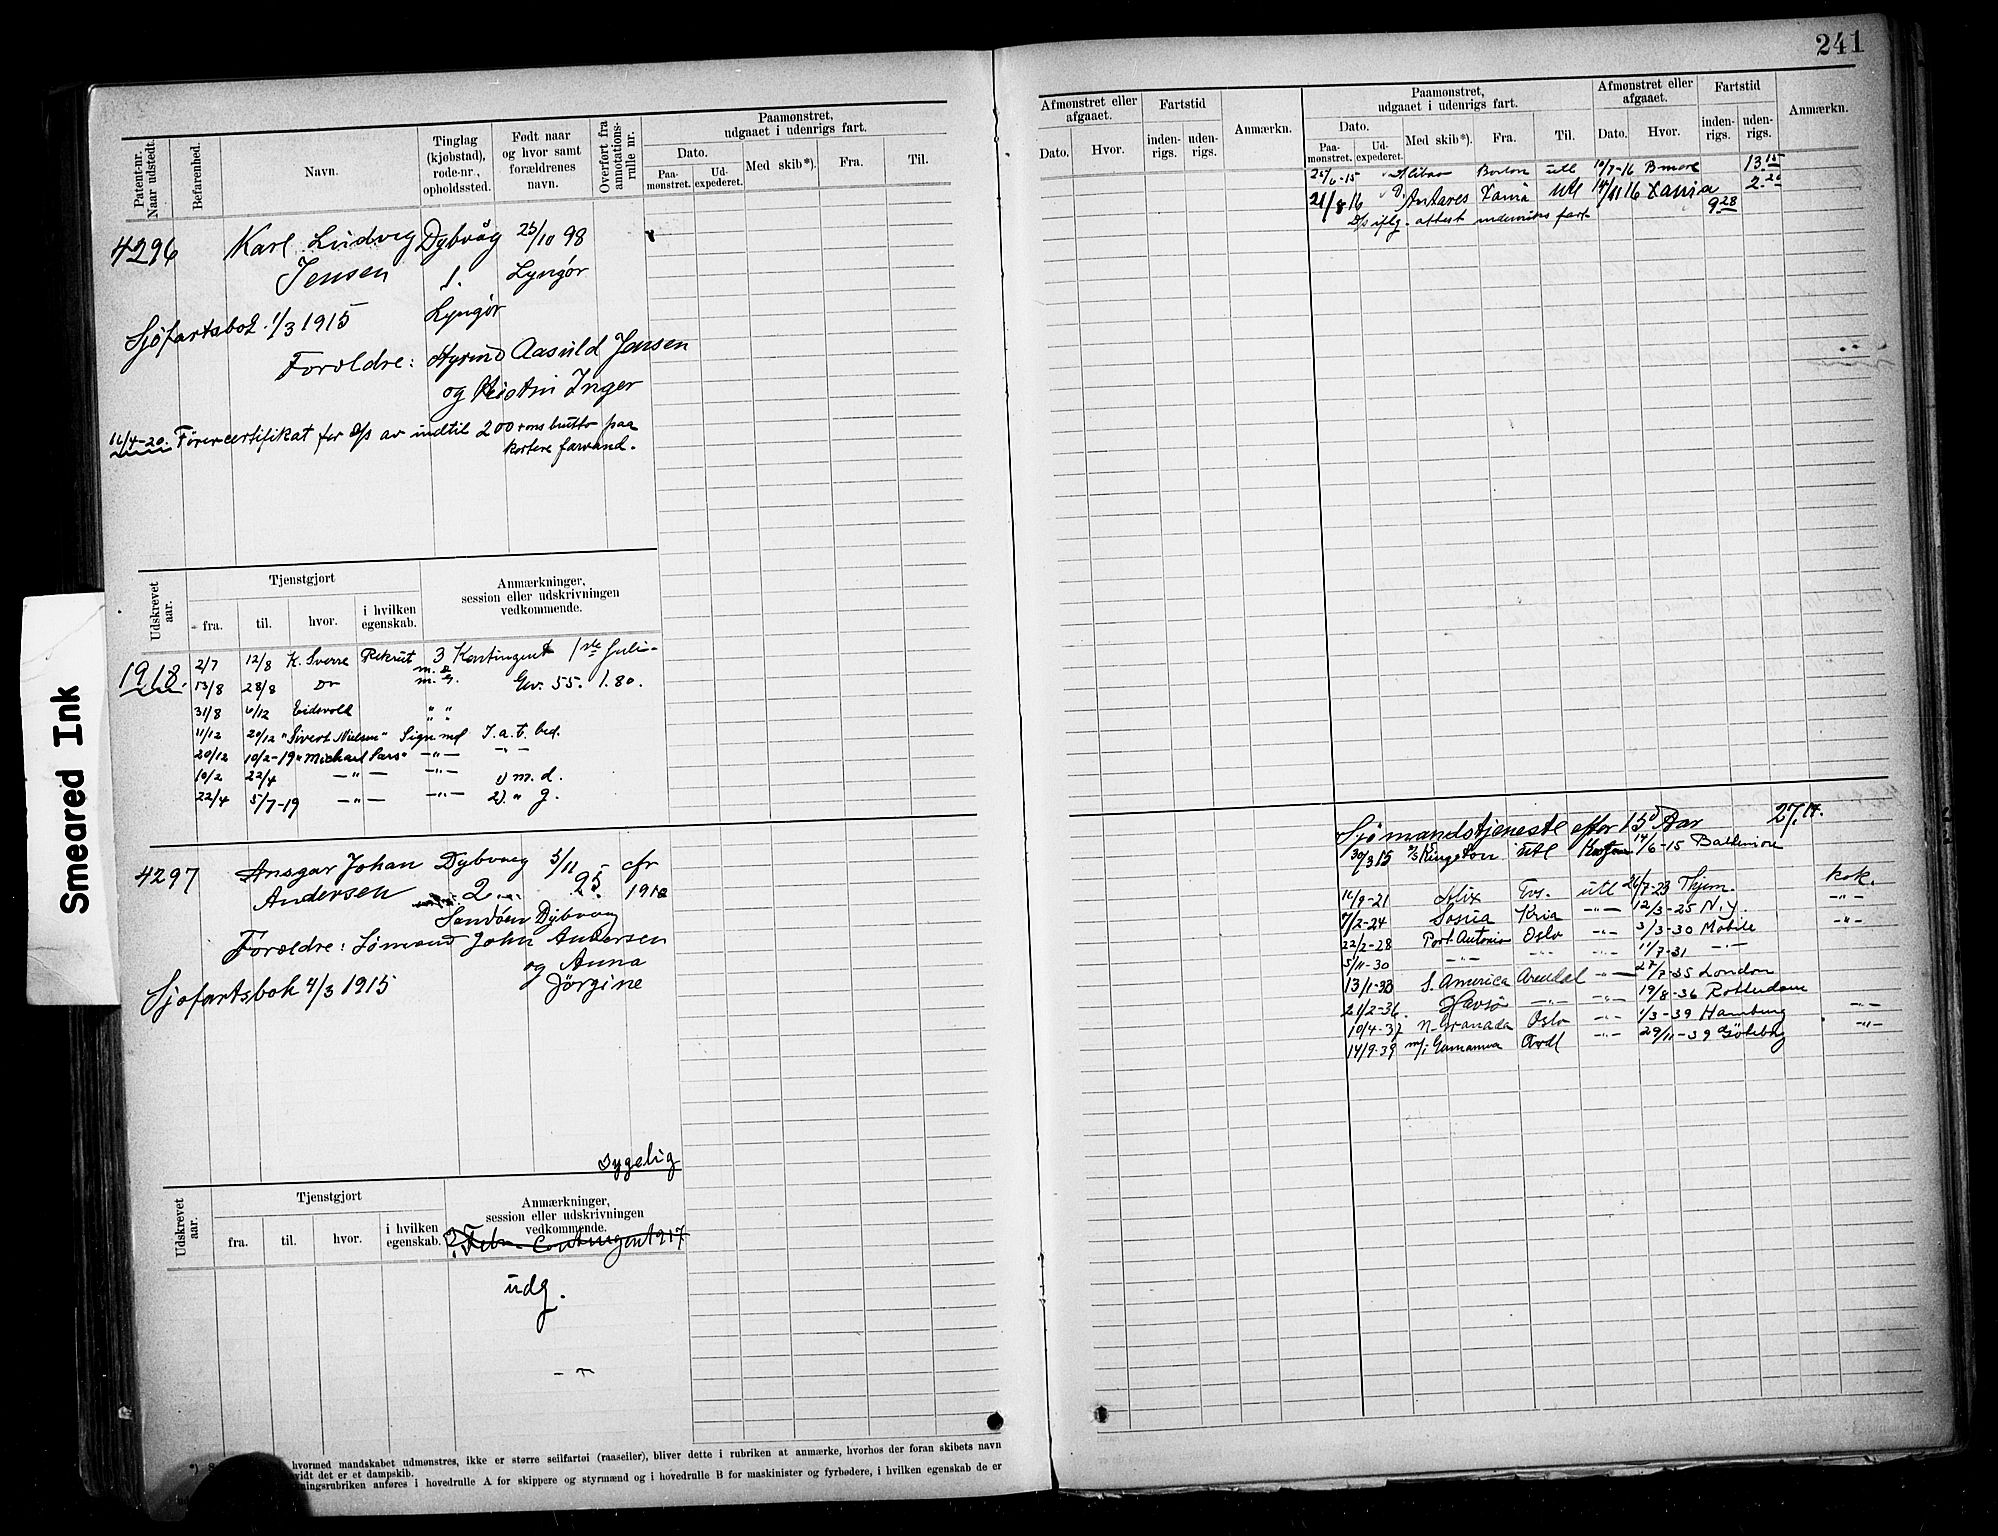 241
Patent-nr. Naar udstedt.
Befarenhed.
Navn.
Tinglag (kjøbstad), rode-nr., opholdssted.
Født naar og hvor samt forældrenes navn.
Overført fra annotations-rulle nr.
Paamønstret, udgaaet i udenrigs fart.
Dato.
Paa-mønstret.
Ud-expederet.
Med skib*).
Fra.
Til.
4296 Karl Ludvig Dybvåg 23/10 98
Jensen 1. Lyngør
Sjøfartsbok 1/3 1915 Lyngør
Forældre: Styrmd Aasuld Jensen
og Kristin Inger
16/4-20. Førercertifikat for D/S av indtil 200 tons brutto paa
kortere farvand.
Udskrevet aar.
Tjenstgjort
fra.
til.
hvor.
i hvilken egenskab.
Anmærkninger, session eller udskrivningen vedkommende.
1918. 2/7 12/8 K. Sverre Rekrut 3 Kontingent 1ste Juli
13/8 28/8 Do m. g. Gv. 55. 1.80.
31/8 4/12 Eidsvold " "
11/12 20/12 "Sivert Nielsen" Sign md J. a. t. bed.
20/12 10/2-19 "Michael Sars" —"— —"—
10/2 22/4 —"— —"— 1) m. d.
22/4 5/7-19 —"— —"— 2) " g.
4297 Ansgar Johan Dybvaag 5/11 cfr
Andersen 2 95 1912
Sandøen Dybvaag
Forældre: Sømand John Andersen
og Anna
Sjøfartsbok 4/3 1915 Jørgine
sygelig
Udskrevet aar.
Tjenstgjort
fra.
til.
hvor.
i hvilken egenskab.
Anmærkninger, session eller udskrivningen vedkommende.
2. Febr. Contingent 1917
udg.
*) S hvormed mandskabet udmønstres, ikke er større seilfartøi (raaseiler), bliver dette i rubriken at anmærke, hvorhos der foran skibets navn
vidt det er et dampskib.
ningsrubriken anføres i hovedrulle A for skippere og styrmænd og i hovedrulle B for maskinister og fyrbødere, i hvilken egenskab de er
Afmønstret eller afgaaet.
Dato.
Hvor.
Fartstid
inden-rigs.
uden-rigs.
Anmærkn.
Paamønstret, udgaaet i udenrigs fart.
Dato.
Paa-mønstret.
Ud-expederet.
Med skib*).
Fra.
Til.
Afmønstret eller afgaaet.
Dato.
Hvor.
Fartstid
inden-rigs.
uden-rigs.
Anmærkn.
26/6-15 Boston utl 10/7-16 B-more 13 15
21/8 16 Antares Xania utl 14/11 16 Xania 2.20
D/S iflg. attest indenriks fart 9 28
Sjømandstjeneste efter 15 Aar 27.14.
30/3 15 Kingston utl 14/6-15 Baltimore
16/9-21 Alix Tvs. utl 26/7-23 Hjem. kok.
7/2-24 Sosua Kria —"— 12/3-25 N.Y. —"—
22/2-28 Port Antonio Oslo —"— 3/3-30 Mobile —"—
5/11-30 —"— —"— —"— 11/7-31 —"—
13/1-33 S. America Arendal —"— 27/7-35 London
21/2-36. Havsø —"— —"— 19/8-36 Rotterdam
10/4-37 N. Granada Oslo —"— 1/3-39 Hamburg —"—
14/9-39 Ardl —"— 29/11-39 Göteborg —"—
Smeared Ink